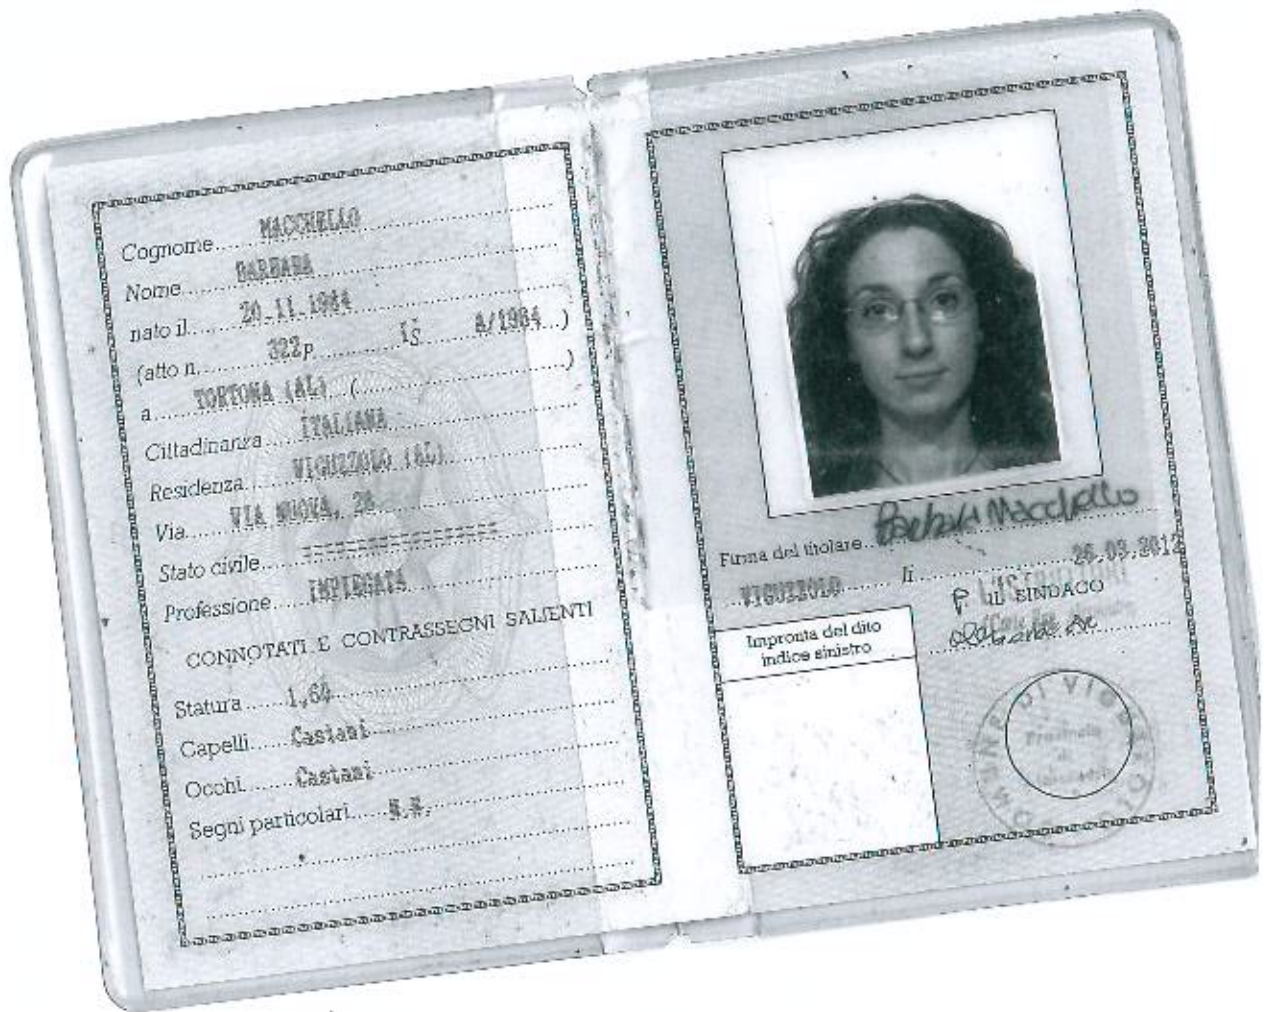 Cognome MACCHELLO
Nome BARBARA
nato il 20.11.1984
(atto n. 322 P 1 S A/1984)
a TORTONA (AL) ( )
Cittadinanza ITALIANA
Residenza VIGUZZOLO (AL)
Via VIA NUOVA, 28
Stato civile ==================
Professione IMPIEGATA
CONNOTATI E CONTRASSEGNI SALIENTI
Statura 1,60
Capelli Castani
Occhi Castani
Segni particolari N.N.
Firma del titolare Barbara Macchello
VIGUZZOLO li 26.03.2012
P. IL SINDACO
Impronta del dito
indice sinistro
Provincia
di